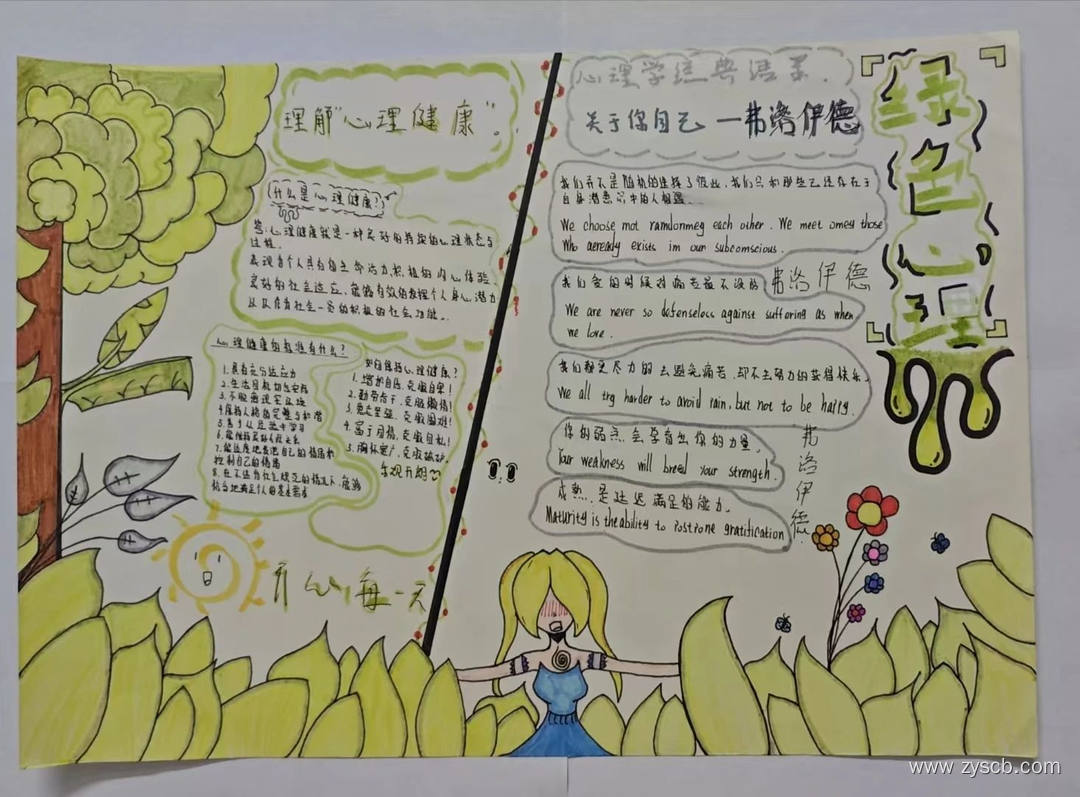 理解"心理健康"。
什么是心理健康?
答:心理健康就是一种良好的持续的心理状态与
过程。
表现为个人具有生命活力积极的内心体验
良好的社会适应,能够有效的发挥个人身心潜力
以及作为社会一员的积极的社会功能。
心理健康的标准有什么?
1.具有充分适应力
2.生活目标切合实际
3.不脱离现实环境
4.保持人格的完整与和谐
5.善于从经验中学习
6.能保持良好人际关系
7.能适度地表达自己的情绪和
控制自己的情绪
8.在不违背社会规范的情况下,能够
恰当地满足个人的基本需求
如何保持心理健康?
1.增加自信,克服自卑!
2.勤劳肯干,克服懒惰!
3.意志坚强,克服困难!
4.富于同情,克服自私!
5.胸怀宽广,克服
乐观开朗
开心每一天
心理学经典语录.
关于你自己 —弗洛伊德
我们并不是随机的选择了彼此,我们只和那些已经存在于
自身潜意识中的人相遇...
We choose not ramdonmeg each other. We meet omeg those
Who aeready exists im our subconscious.
弗洛伊德
我们爱的时候对痛苦最不设防
We are never so defenseless against suffering as when
we love.
我们都更尽力的去避免痛苦,却不去努力的获得快乐.
We all trg harder to avoid rain, but not to be hally.
你的弱点,会孕育出你的力量.
Your weakness will breed your strength.
弗洛伊德.
成熟,是延迟满足的能力.
Maturity is the ability to Postpone gratification
绿色心理
www.zyscb.com